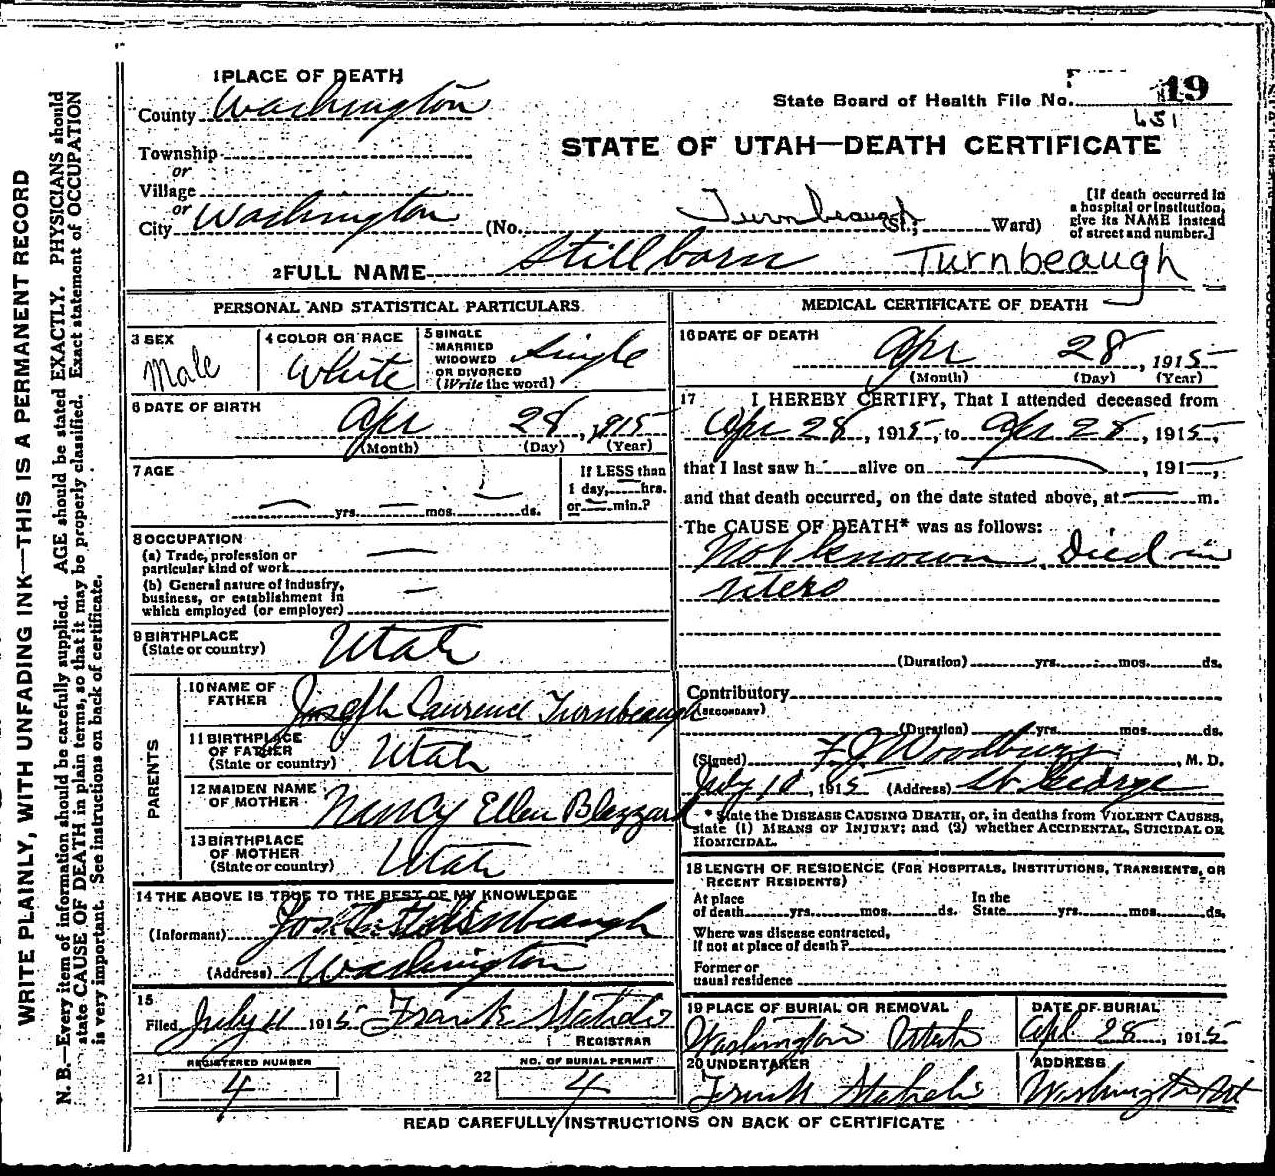 WRITE PLAINLY, WITH UNFADING INK—THIS IS A PERMANENT RECORD
N. B.—Every item of information should be carefully supplied. AGE should be stated EXACTLY. PHYSICIANS should
state CAUSE OF DEATH in plain terms, so that it may be properly classified. Exact statement of OCCUPATION
is very important. See instructions on back of certificate.
1 PLACE OF DEATH
County Washington
Township
or
Village
or
City Washington
State Board of Health File No. 19
451
STATE OF UTAH—DEATH CERTIFICATE
(No. Turnbeaugh St.; Ward)
[If death occurred in
a hospital or institution,
give its NAME instead
of street and number.]
2 FULL NAME Stillborn Turnbeaugh
PERSONAL AND STATISTICAL PARTICULARS
3 SEX
Male
4 COLOR OR RACE
White
5 SINGLE
MARRIED
WIDOWED
OR DIVORCED
(Write the word)
Single
6 DATE OF BIRTH
Apr 28, 1915
(Month) (Day) (Year)
7 AGE
— yrs. — mos. — ds.
If LESS than
1 day, — hrs.
or — min.?
8 OCCUPATION
(a) Trade, profession or
particular kind of work —
(b) General nature of industry,
business, or establishment in
which employed (or employer) —
9 BIRTHPLACE
(State or country) Utah
PARENTS
10 NAME OF
FATHER Joseph Laurence Turnbeaugh
11 BIRTHPLACE
OF FATHER
(State or country) Utah
12 MAIDEN NAME
OF MOTHER Nancy Ellen Blazzard
13 BIRTHPLACE
OF MOTHER
(State or country) Utah
14 THE ABOVE IS TRUE TO THE BEST OF MY KNOWLEDGE
(Informant) Turnbeaugh
(Address) Washington
15
Filed July 11 1915 Frank Staheli
REGISTRAR
REGISTERED NUMBER
21 4
NO. OF BURIAL PERMIT
22 4
MEDICAL CERTIFICATE OF DEATH
16 DATE OF DEATH
Apr 28, 1915
(Month) (Day) (Year)
17 I HEREBY CERTIFY, That I attended deceased from
Apr 28, 1915, to Apr 28, 1915,
that I last saw h alive on —, 191—,
and that death occurred, on the date stated above, at — m.
The CAUSE OF DEATH* was as follows:
Not known Died in
utero
(Duration) yrs. mos. ds.
Contributory
(SECONDARY)
(Duration) yrs. mos. ds.
(Signed) F J Woodbury, M. D.
July 10, 1915 (Address) St George
* State the DISEASE CAUSING DEATH, or, in deaths from VIOLENT CAUSES,
state (1) MEANS OF INJURY; and (2) whether ACCIDENTAL, SUICIDAL OR
HOMICIDAL.
18 LENGTH OF RESIDENCE (FOR HOSPITALS, INSTITUTIONS, TRANSIENTS, OR
RECENT RESIDENTS)
At place
of death yrs. mos. ds.
In the
State yrs. mos. ds.
Where was disease contracted,
if not at place of death?
Former or
usual residence
19 PLACE OF BURIAL OR REMOVAL
Washington Utah
DATE OF BURIAL
Apl 28, 1915
20 UNDERTAKER
Frank Staheli
ADDRESS
Washington Ut
READ CAREFULLY INSTRUCTIONS ON BACK OF CERTIFICATE